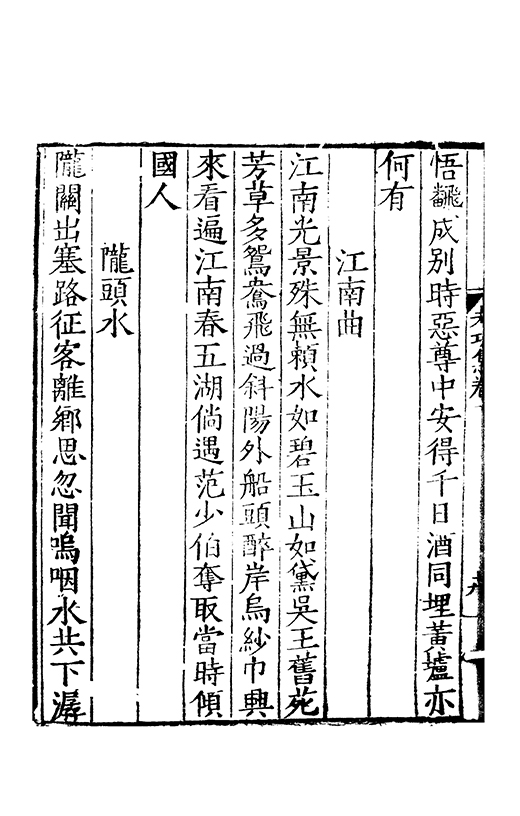 悟飜成別時惡尊中安得千日酒同埋黃壚亦
何有
江南曲
江南光景殊無賴水如碧玉山如黛吳王舊苑
芳草多鴛鴦飛過斜陽外船頭醉岸烏紗巾興
來看遍江南春五湖倘遇范少伯奪取當時傾
國人
隴頭水
隴關出塞路征客離鄉思忽聞嗚咽水共下潺